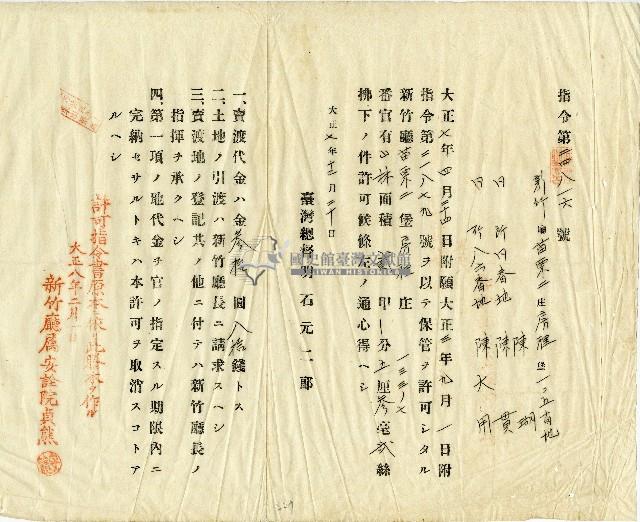 指令第二四八一六號
新竹廳苗栗二堡房裡庄一〇五番地
陳瑚
同 所同番地 陳貫
同 所八六番地 陳大用
大正七年四月二十四日附願大正三年九月一日附
指令第二一八七九號ヲ以テ保管ヲ許可シタル
新竹廳苗栗二堡房裡庄一三三ノ七
番官有山林面積貳甲一分五厘參毫貳絲
拂下ノ件許可候條左ノ通心得ヘシ
大正七年十二月二十日
臺灣總督明石元二郎
一、賣渡代金ハ金參拾圓八拾錢トス
二、土地ノ引渡ハ新竹廳長ニ請求スヘシ
三、賣渡地ノ登記其ノ他ニ付テハ新竹廳長ノ
指揮ヲ承クヘシ
四、第一項ノ地代金ヲ官ノ指定スル期限內ニ
完納セサルトキハ本許可ヲ取消スコトア
ルヘシ
許可指令書原本ニ依此謄本ヲ作ル
大正八年二月一日
新竹廳屬安詮院貞熊
國史館臺灣文獻館
TAIWAN HISTORICA